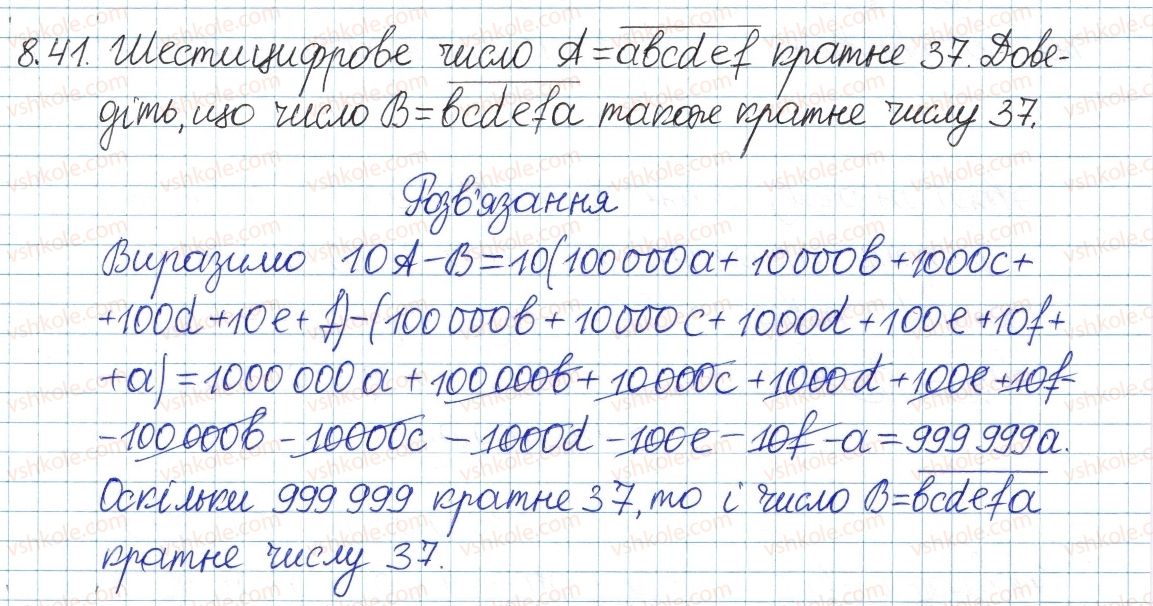 8.41. Шестицифрове число A=abcdef кратне 37. Дове-
діть, що число B=bcdefa також кратне числу 37.
Розв'язання
Виразимо 10A-B=10(100000a+10000b+1000c+
+100d+10e+f)-(100000b+10000c+1000d+100e+10f+
+a)=1000000a+100000b+10000c+1000d+100e+10f-
-100000b-10000c-1000d-100e-10f-a=999999a.
Оскільки 999999 кратне 37, то і число B=bcdefa
кратне числу 37.